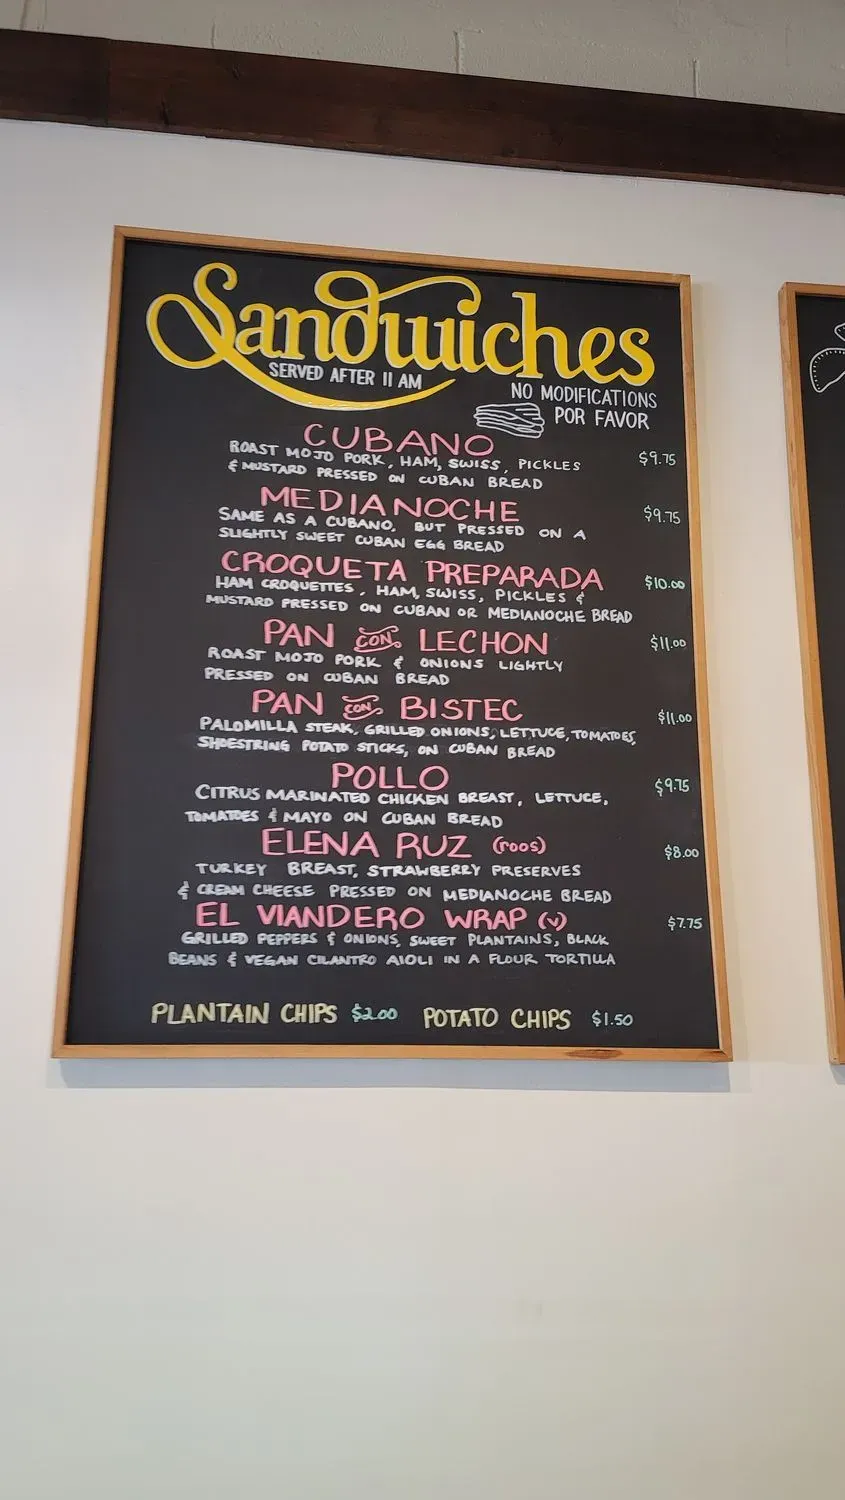 Sandwiches
SERVED AFTER 11 AM
NO MODIFICATIONS
POR FAVOR
CUBANO
ROAST MOJO PORK, HAM, SWISS, PICKLES $9.75
& MUSTARD PRESSED ON CUBAN BREAD
MEDIANOCHE
SAME AS A CUBANO, BUT PRESSED ON A $9.75
SLIGHTLY SWEET CUBAN EGG BREAD
CROQUETA PREPARADA
HAM CROQUETTES, HAM, SWISS, PICKLES & $10.00
MUSTARD PRESSED ON CUBAN OR MEDIANOCHE BREAD
PAN CON LECHON $11.00
ROAST MOJO PORK & ONIONS LIGHTLY
PRESSED ON CUBAN BREAD
PAN CON BISTEC $11.00
PALOMILLA STEAK, GRILLED ONIONS, LETTUCE, TOMATOES,
SHOESTRING POTATO STICKS, ON CUBAN BREAD
POLLO $9.75
CITRUS MARINATED CHICKEN BREAST, LETTUCE,
TOMATOES & MAYO ON CUBAN BREAD
ELENA RUZ (roos) $8.00
TURKEY BREAST, STRAWBERRY PRESERVES
& CREAM CHEESE PRESSED ON MEDIANOCHE BREAD
EL VIANDERO WRAP (v) $7.75
GRILLED PEPPERS & ONIONS, SWEET PLANTAINS, BLACK
BEANS & VEGAN CILANTRO AIOLI IN A FLOUR TORTILLA
PLANTAIN CHIPS $2.00 POTATO CHIPS $1.50